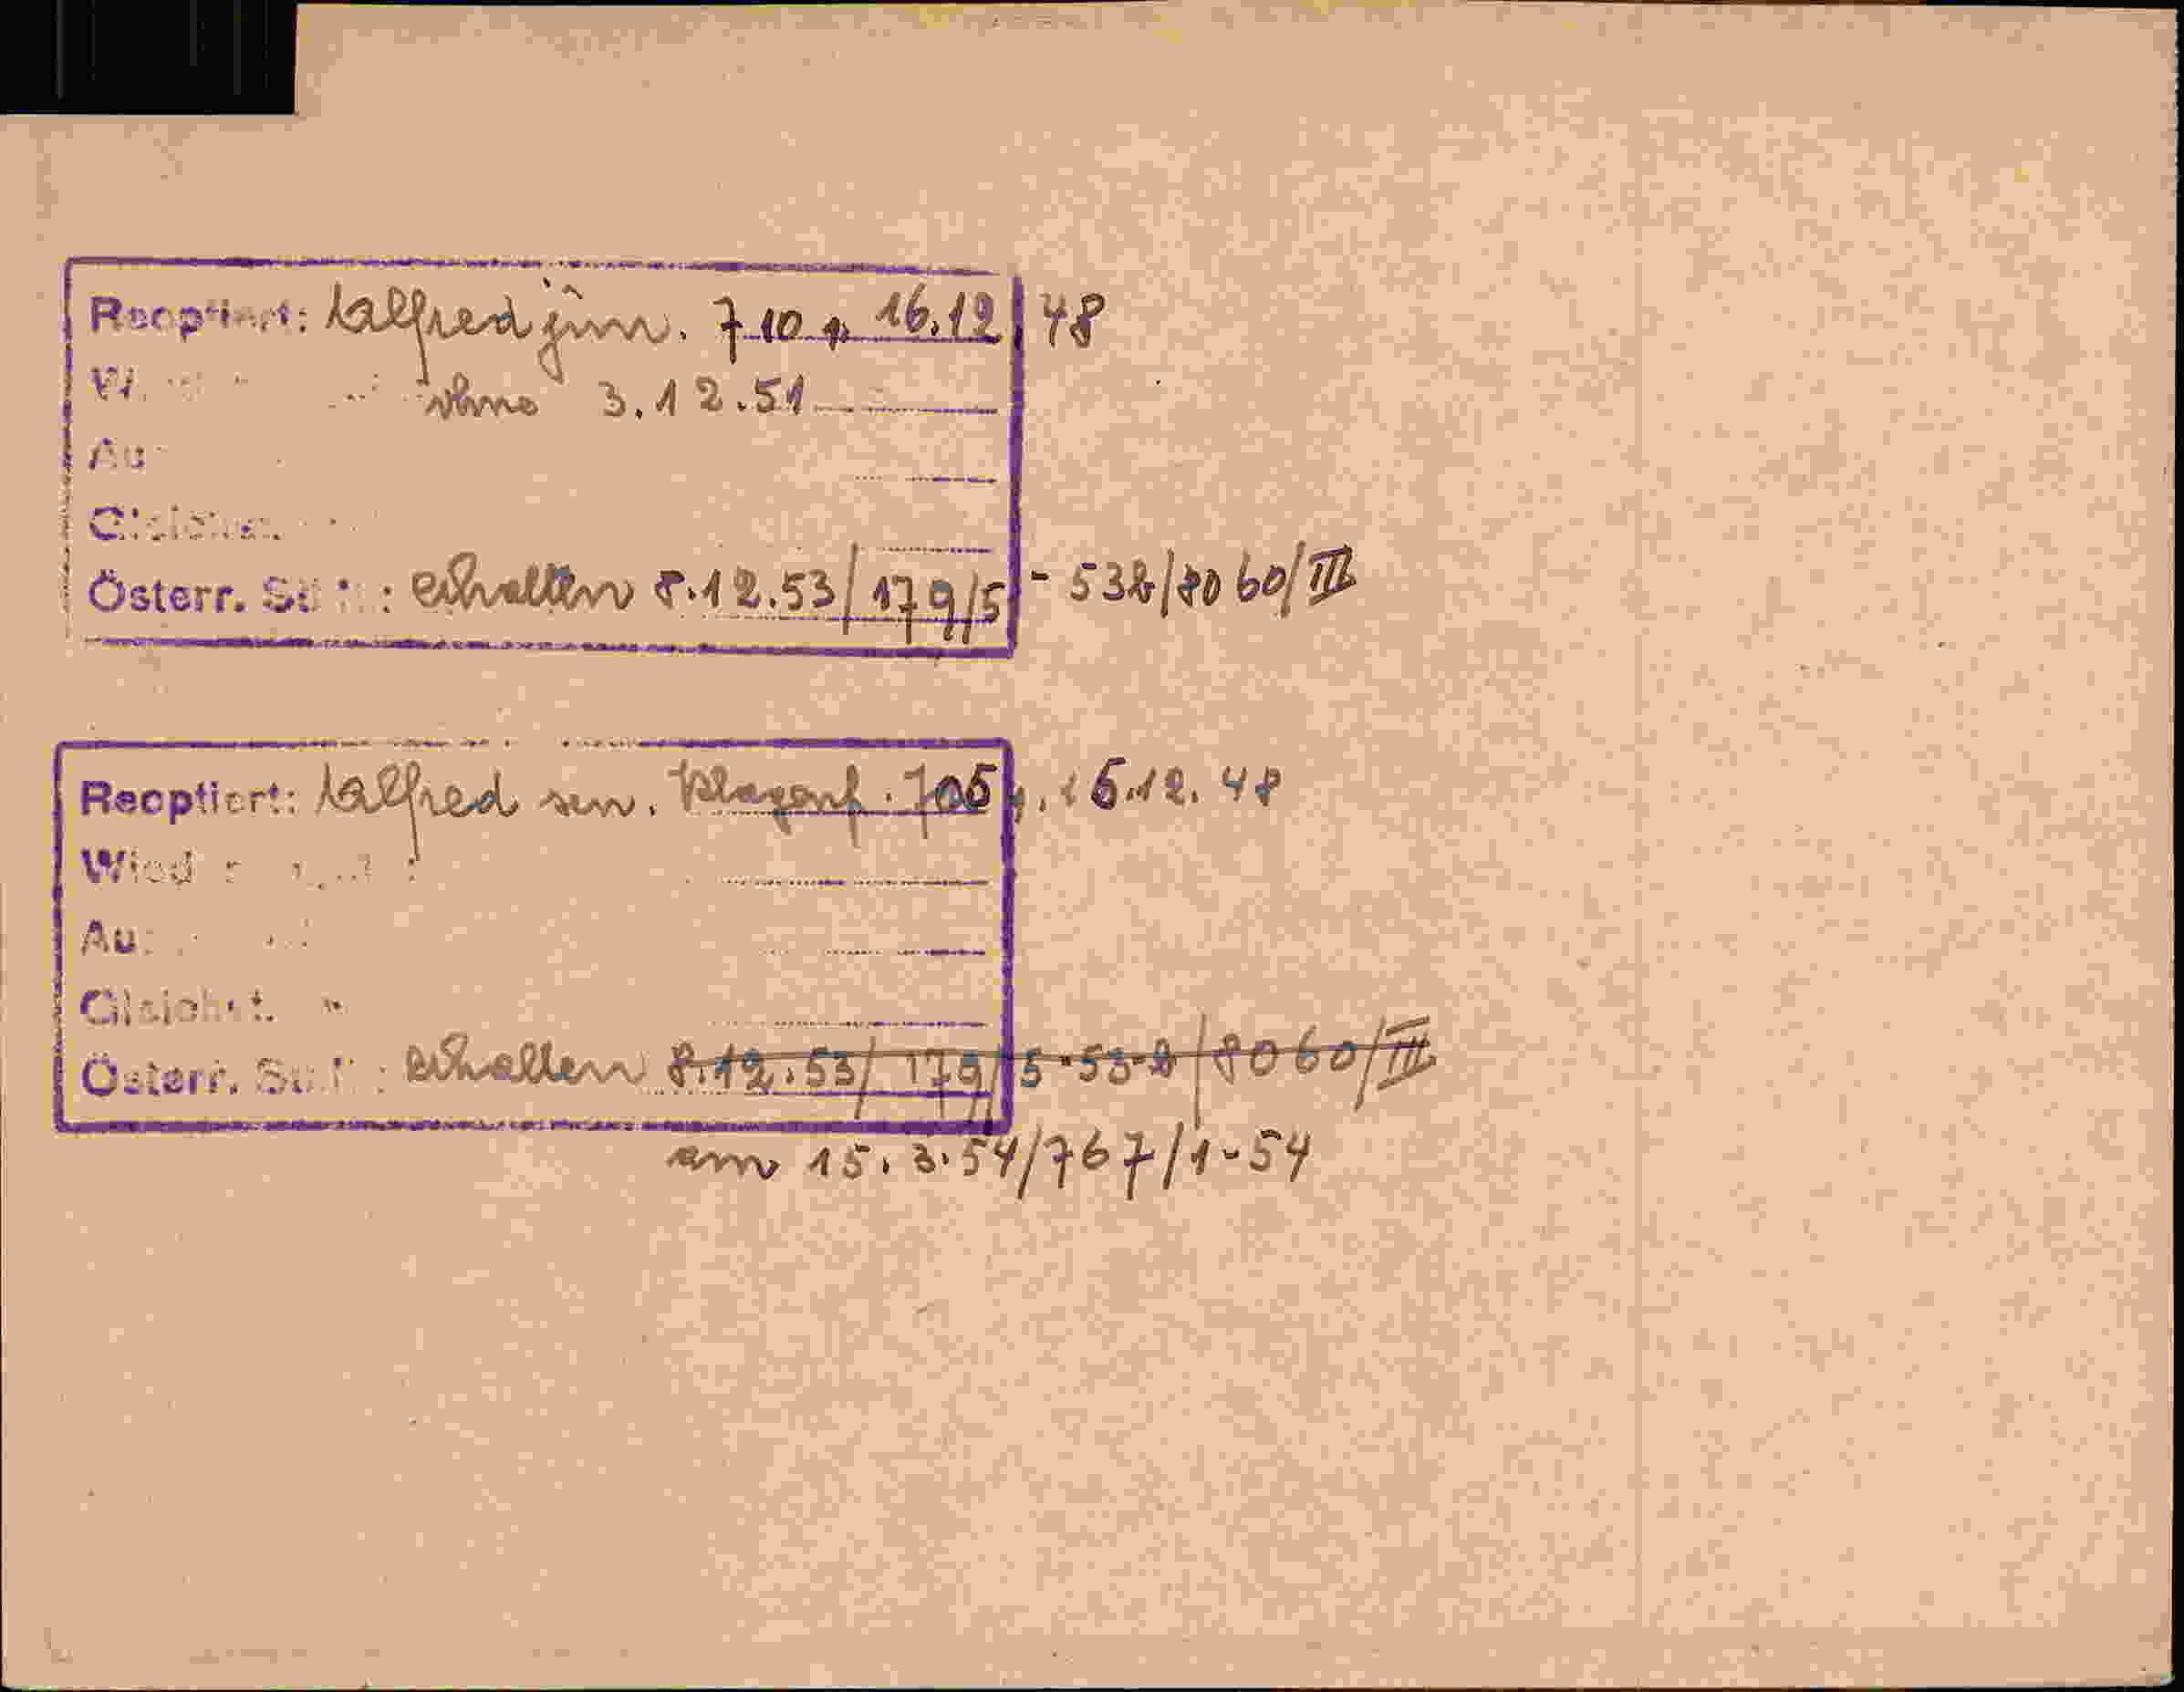 Reoptiert: Alfred jun. 710 p 16.12.48
ohne 3.12.51
Au
Gleichst.
Österr. St : erhalten 8.12.53/179/5-532/8060/III
Reoptiert: Alfred sen. Klagenf. 705 p. 16.12.48
Wied
Au
Gleichst.
Österr. St : erhalten 8.12.53/179/5-53-2/8060/III
am 15.3.54/767/1-54